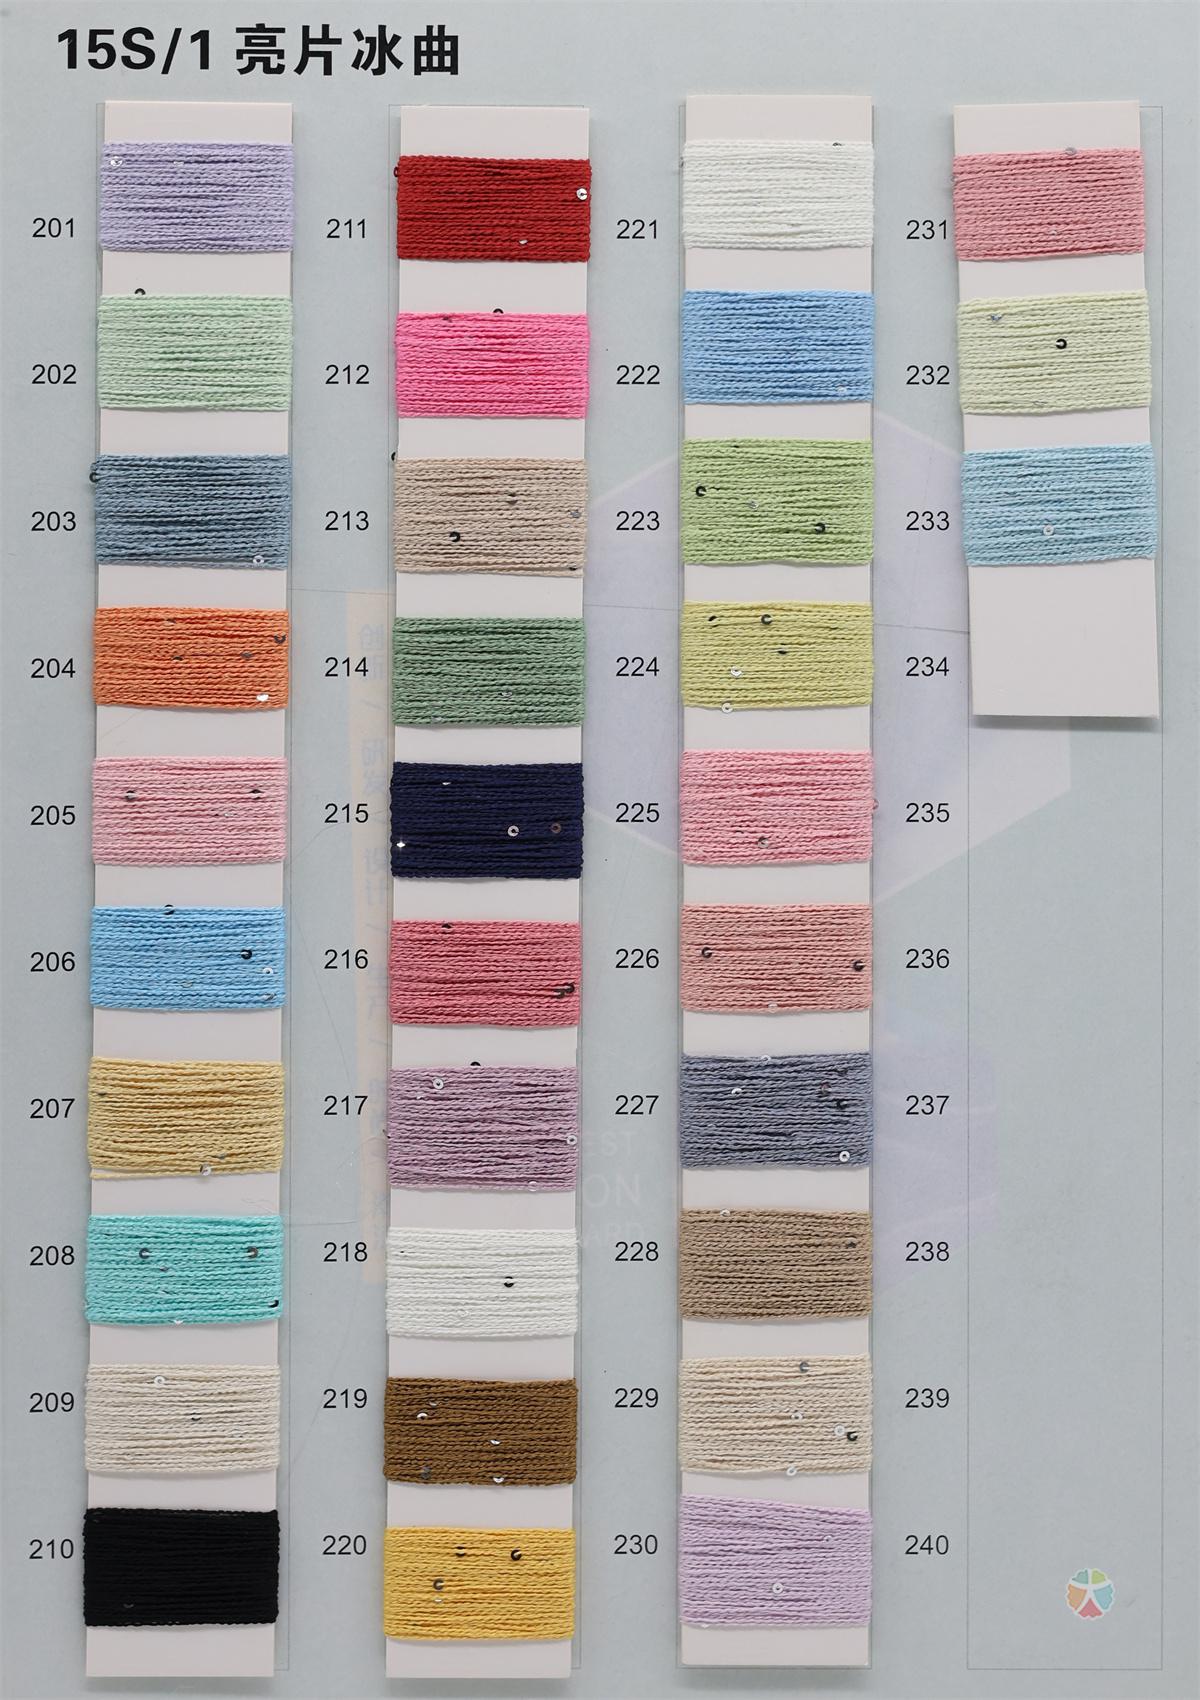 15S/1 亮片冰曲
201
202
203
204
205
206
207
208
209
210
211
212
213
214
215
216
217
218
219
220
221
222
223
224
225
226
227
228
229
230
231
232
233
234
235
236
237
238
239
240
EST
ON